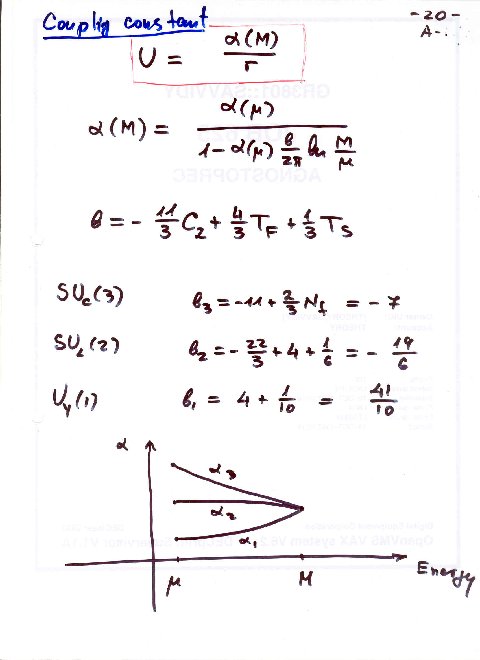 Coupling constant
-20-
A-..
U = α(M) / r
α(M) = α(μ) / (1 - α(μ) b/2π ln M/μ)
b = - 11/3 C₂ + 4/3 T_F + 1/3 T_S
SU_c(3) b₃ = -11 + 2/3 N_f = - 7
SU_L(2) b₂ = - 22/3 + 4 + 1/6 = - 19/6
U_Y(1) b₁ = 4 + 1/10 = 41/10
α
α₃
α₂
α₁
μ M Energy